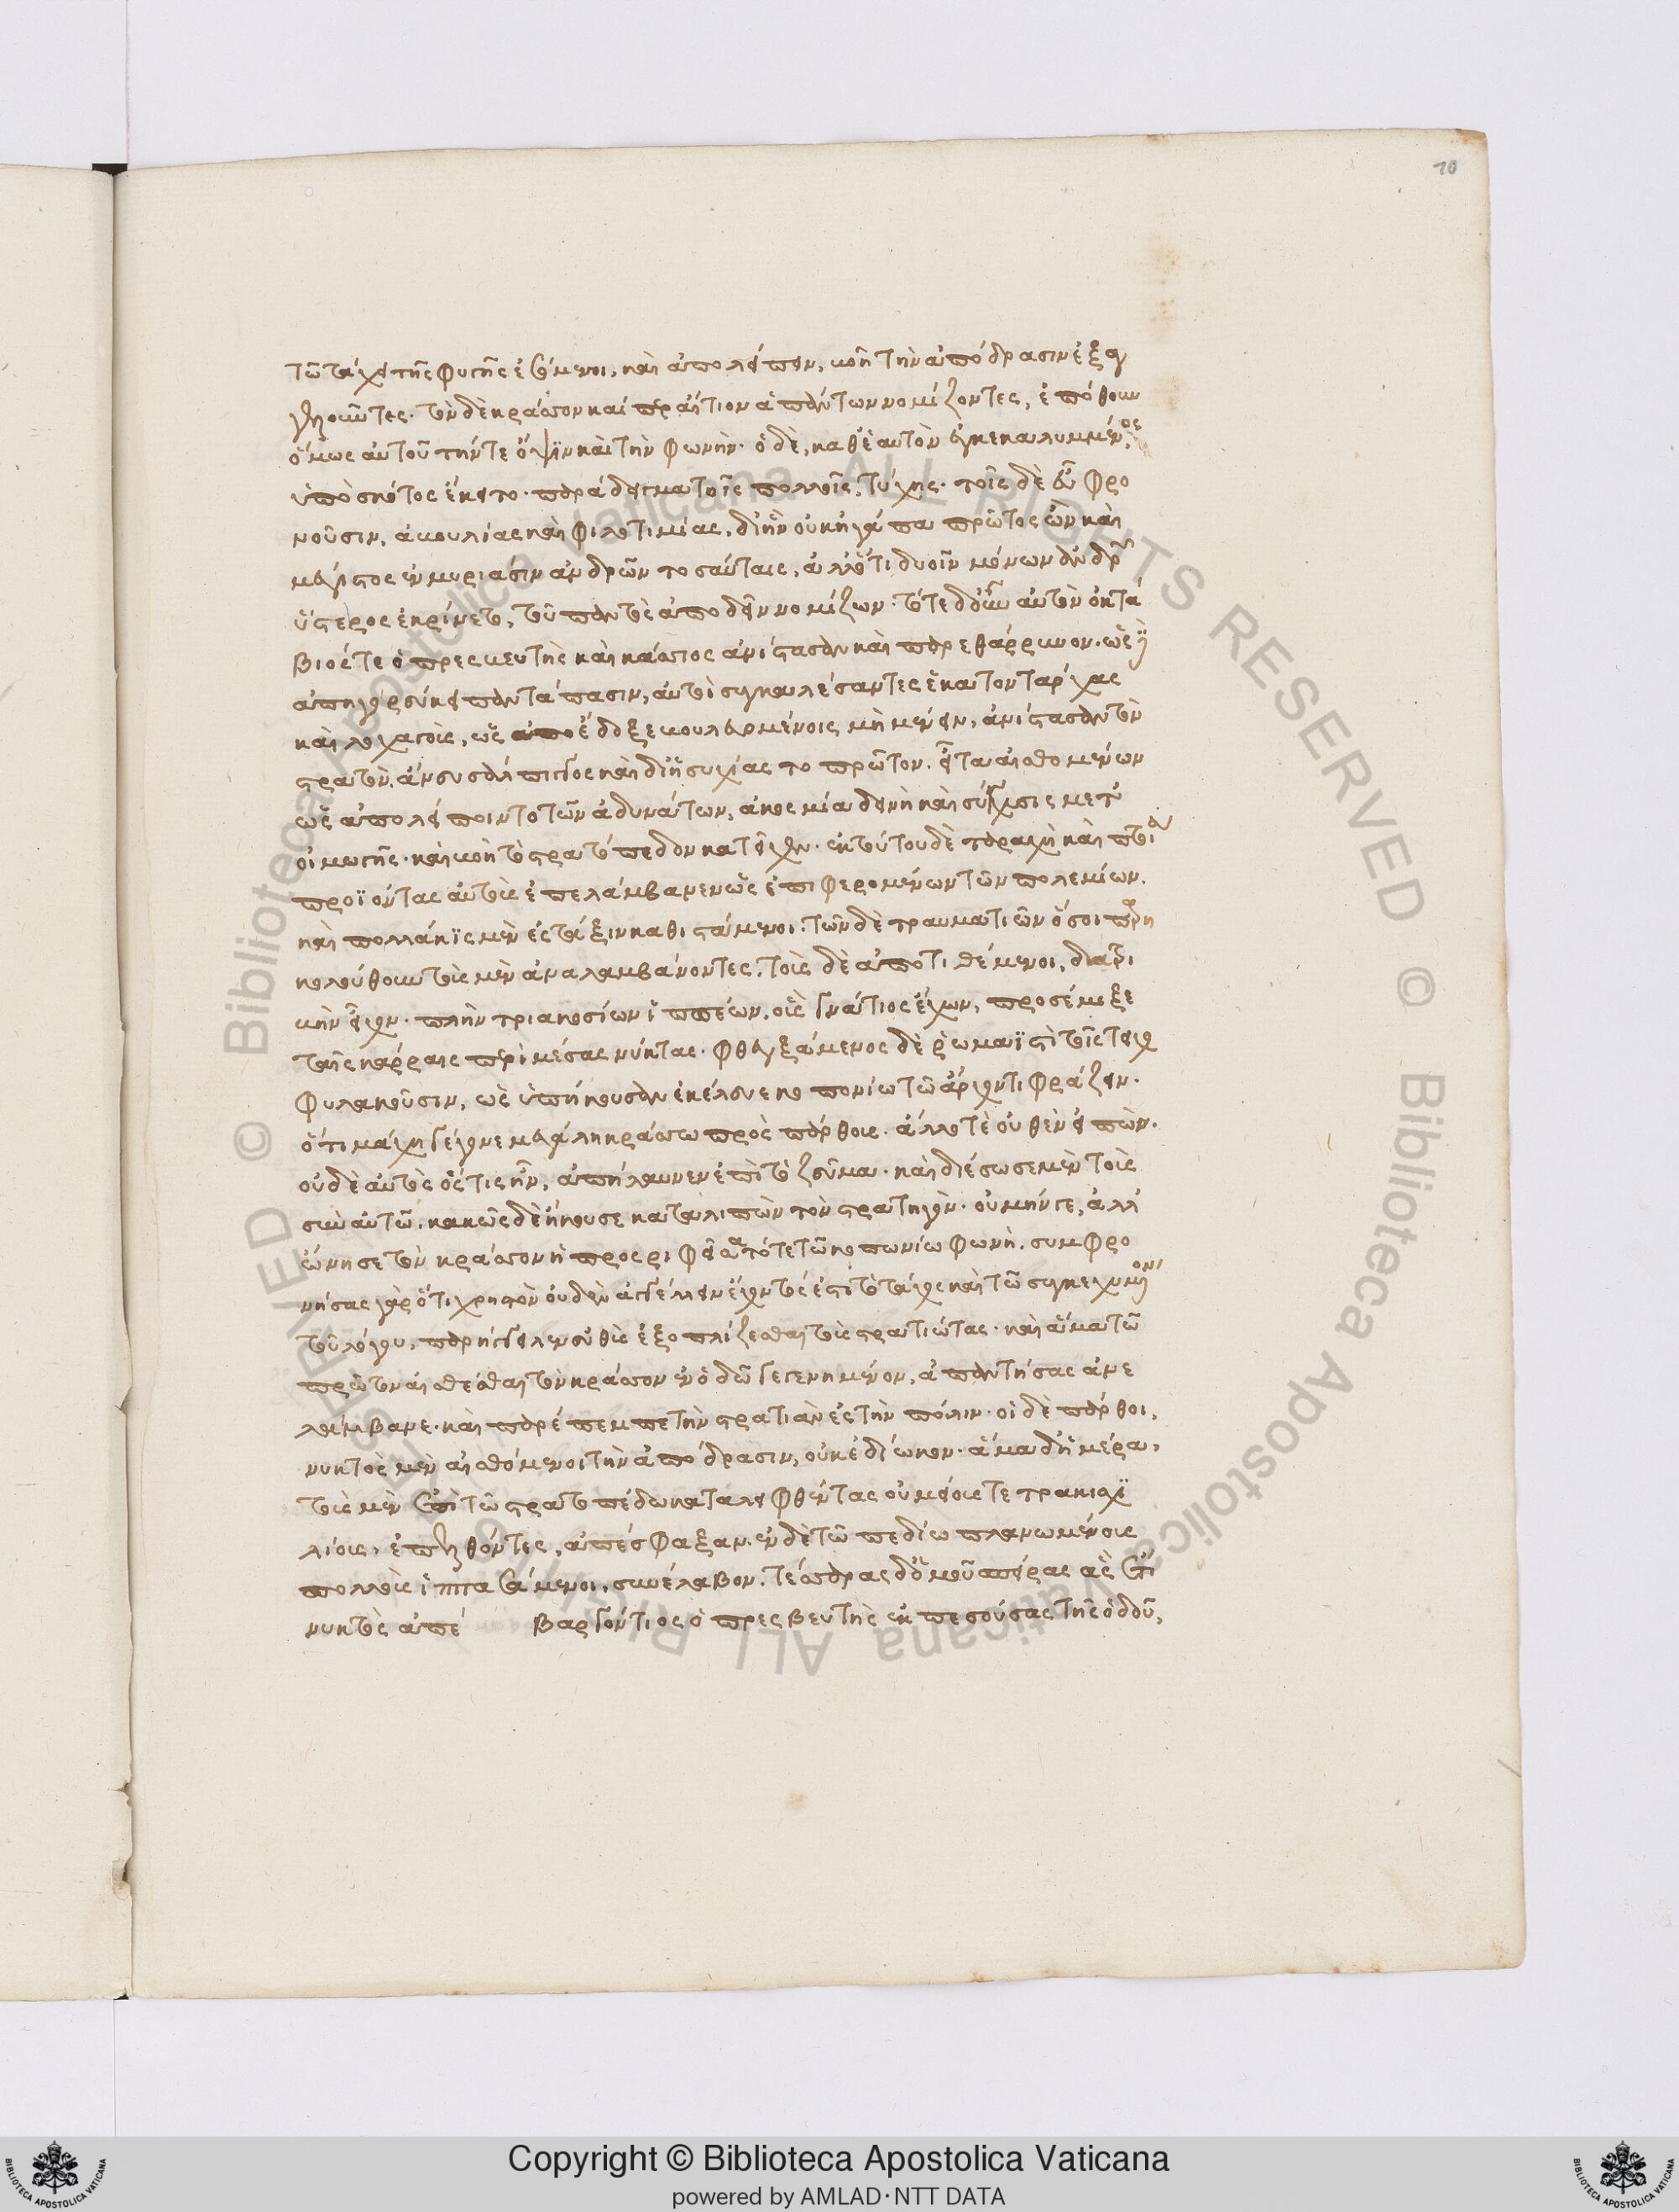 70
τῶ τάχει τῆς φυγῆς ἐσόμενοι, καὶ ἀπολείπειν, καὶ τὴν ἀπόδρασιν ἐξαγ
γελοῦντες. τὸν δὲ κράσσον καίπερ αἴτιον ἁπάντων νομίζοντες, ἐπόθουν
ὅμως αὐτοῦ τήν τε ὄψιν καὶ τὴν φωνήν. ὁ δὲ, καθ' ἑαυτὸν ἐγκεκαλυμμένος
ὑπὸ σκότος ἔκειτο. παράδειγμα τοῖς πολλοῖς, τύχης. τοῖς δὲ εὖ φρο
νοῦσιν, ἀβουλίας καὶ φιλοτιμίας, δι' ἣν οὐκ ἠγάπα πρῶτος ὢν καὶ
μέγιστος ἐν μυριάσιν ἀνδρῶν τοσαύταις, ἀλλ' ὅτι δυοῖν μόνων ἀνδρῶν
ὕστερος ἐκρίνετο, τοῦ παντὸς ἀποδεῖν νομίζων. τότε δ' οὖν αὐτὸν ὀκτά
βιός τε ὁ πρεσβευτὴς καὶ κάσσιος ἀνίστασαν καὶ παρεθάρρυνον. ὡς δ'
ἀπηγορεύκει παντάπασιν, αὐτοὶ συγκαλέσαντες ἑκατοντάρχας
καὶ λοχαγοὺς, ὡς ἔδοξε βουλευομένοις μὴ μένειν, ἀνίστασαν τὸν
στρατὸν, ἄνευ σάλπιγγος καὶ δι' ἡσυχίας τὸ πρῶτον. εἶτα αἰσθομένων
ὡς ἀπολείποιντο τῶν ἀδυνάτων, ἀκοσμία δεινὴ καὶ σύγχυσις μετ'
οἰμωγῆς. καὶ βοὴ τὸ στρατόπεδον κατεῖχεν. ἐκ τούτου δὲ ταραχὴ καὶ πτοία
προϊόντας αὐτοὺς ἐπελάμβανεν ὡς ἐπιφερομένων τῶν πολεμίων.
καὶ πολλάκις μὲν ἐς τάξιν καθιστάμενοι. τῶν δὲ τραυματιῶν ὅσοι παρη
κολούθουν τοὺς μὲν ἀναλαμβάνοντες, τοὺς δὲ ἀποτιθέμενοι, διατρι
βὴν εἶχον. πλὴν τριακοσίων ἱππέων, οὓς ἰγνάτιος ἔχων, προσέμιξε
ταῖς κάρραις περὶ μέσας νύκτας. φθεγξάμενος δὲ ῥωμαϊστὶ τοῖς τειχο
φυλακοῦσιν, ὡς ὑπήκουσαν ἐκέλευε κοπονίω τῶ ἄρχοντι φράζειν.
ὅτι μάχη γέγονε μεγάλη κράσσω πρὸς πάρθους. ἄλλο τε οὐθὲν εἰπών.
οὐδὲ αὐτὸς ὅστις ἦν, ἀπήλαυνεν ἐπὶ τὸ ζεῦγμα. καὶ διέσωσε μὲν τοὺς
σὺν αὐτῶ. κακῶς δὲ ἤκουσε καταλιπὼν τὸν στρατηγόν. οὐ μήν γε, ἀλλ'
ὤνησε τὸν κράσσον ἡ προσριφεῖσα τότε τῶ κοπωνίω φωνή. συμφρο
νήσας γὰρ ὅτι χρηστὸν οὐδὲν ἀγγέλλειν ἔχοντός ἐστι τὸ τάχος καὶ τὸ συγκεχυμένον
τοῦ λόγου, παρήγγειλεν εὐθὺς ἐξοπλίζεσθαι τοὺς στρατιώτας. καὶ ἅμα τῶ
πρῶτον αἰσθέσθαι τὸν κράσσον ἐν ὁδῶ γεγενημένον, ἀπαντήσας ἀνε
λάμβανε. καὶ παρέπεμπε τὴν στρατιὰν ἐς τὴν πόλιν. οἱ δὲ πάρθοι,
νυκτὸς μὲν αἰσθόμενοι τὴν ἀπόδρασιν, οὐκ ἐδίωκον. ἅμα δ' ἡμέρα,
τοὺς μὲν ἐπὶ τῶ στρατοπέδω καταλειφθέντας οὐ μείους τετρακισχι
λίους, ἐπελθόντες, ἀπέσφαξαν. ἐν δὲ τῶ πεδίω πλανωμένους
πολλοὺς ἱππασάμενοι, συνέλαβον. τέσσαρας δ' ὁμοῦ σπείρας ἃς ἔτι
νυκτὸς ἀπέ βαργόντιος ὁ πρεσβευτὴς ἐκπεσούσας τῆς ὁδοῦ,
© Biblioteca Apostolica Vaticana ALL RIGHTS RESERVED
© Biblioteca Apostolica Vaticana ALL RIGHTS RESERVED
BIBLIOTECA APOSTOLICA VATICANA
Copyright © Biblioteca Apostolica Vaticana
powered by AMLAD·NTT DATA
BIBLIOTECA APOSTOLICA VATICANA